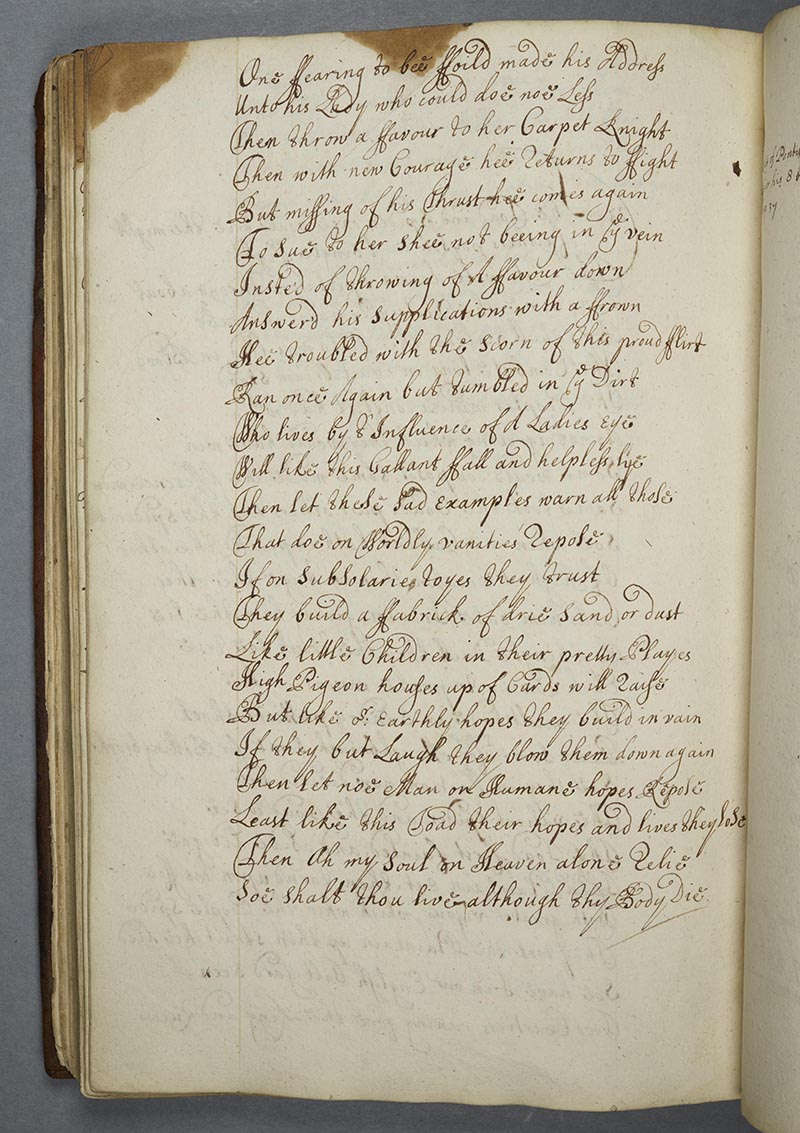 One ffearing to bee ffoild made his Address
Unto his Lady who could doe noe Less
Then throw a ffavour to her Carpet Knight
Then with new Courage hee Returns to ffight
But missing of his Thrust hee comes again
To Sue to her Shee not beeing in ye vein
Insted of throwing of A ffavour down
Answerd his Supplications with a ffrown
Hee troubled with the Scorn of this proud fflirt
Ran once Again but tumbled in ye Dirt
Who lives by ye Influence of A Ladies eye
Will like this Gallant ffall and helpless lye
Then let these Sad Examples warn all those
That doe on Worldly vanities Repose
If on Subsolarie toyes they trust
They build a ffabrick of drie Sand or dust
Like little Children in their pretty Playes
High Pigeon houses up of Cards will Raise
But like or: Earthly hopes they build in vain
If they but Laugh they blow them down again
Then let noe Man on Humane hopes Repose
Least like this Toad their hopes and lives they lose
Then Oh my Soul on Heaven alone Relie
Soe Shalt thou live although thy Body Die